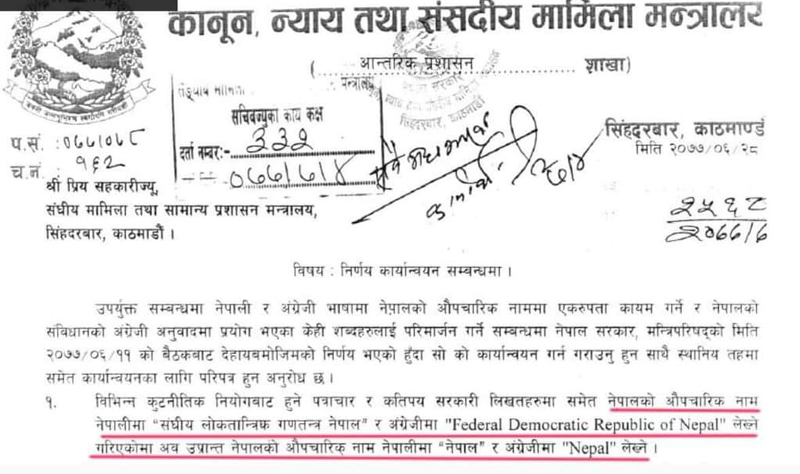 कानून, न्याय तथा संसदीय मामिला मन्त्रालय
(आन्तरिक प्रशासन शाखा)
सचिवज्यूको कार्य कक्ष
दर्ता नम्बर:- ३३२
सिंहदरबार, काठमाण्डौं
मिति २०७७/०६/२८
प.सं. :०७७/०७८
च.नं. : १६२
श्री प्रिय सहकारीज्यू,
संघीय मामिला तथा सामान्य प्रशासन मन्त्रालय,
सिंहदरबार, काठमाडौं ।
विषय : निर्णय कार्यान्वयन सम्बन्धमा ।
उपर्युक्त सम्बन्धमा नेपाली र अंग्रेजी भाषामा नेपालको औपचारिक नाममा एकरुपता कायम गर्ने र नेपालको
संविधानको अंग्रेजी अनुवादमा प्रयोग भएका केही शब्दहरुलाई परिमार्जन गर्ने सम्बन्धमा नेपाल सरकार, मन्त्रिपरिषद्को मिति
२०७७/०६/११ को बैठकबाट देहायबमोजिमको निर्णय भएको हुँदा सो को कार्यान्वयन गर्न गराउनु हुन साथै स्थानिय तहमा
समेत कार्यान्वयनका लागि परिपत्र हुन अनुरोध छ ।
१. विभिन्न कुटनीतिक नियोगबाट हुने पत्राचार र कतिपय सरकारी लिखतहरुमा समेत नेपालको औपचारिक नाम
नेपालीमा "संघीय लोकतान्त्रिक गणतन्त्र नेपाल" र अंग्रेजीमा "Federal Democratic Republic of Nepal" लेख्ने
गरिएकोमा अव उप्रान्त नेपालको औपचारिक नाम नेपालीमा "नेपाल" र अंग्रेजीमा "Nepal" लेख्ने ।